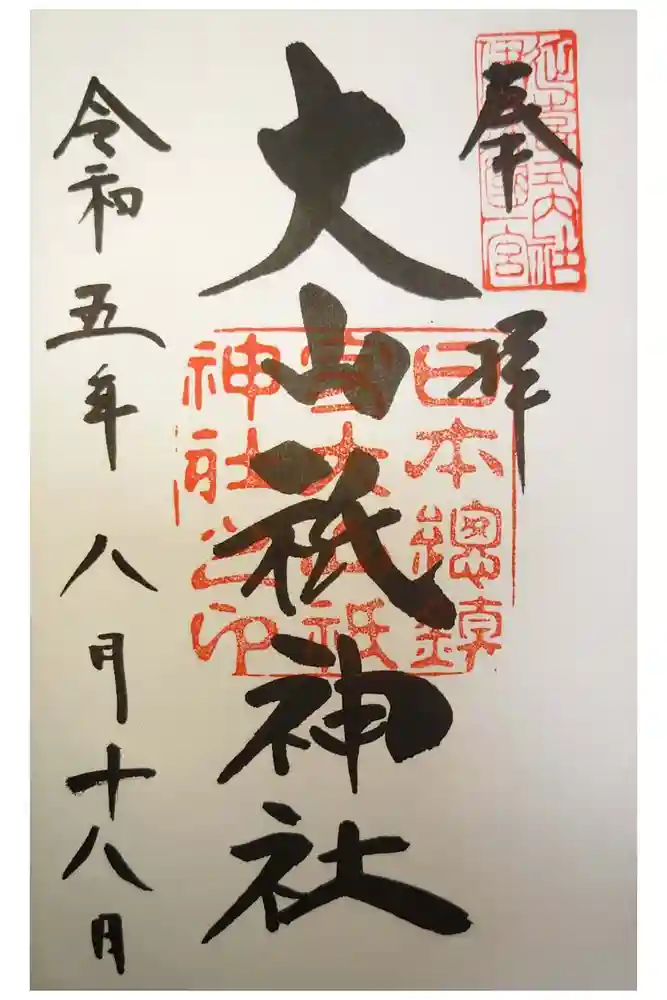 延喜式内社
奉拝
日本總鎮
守大山祇
神社之印
大山祇神社
令和五年八月十八日